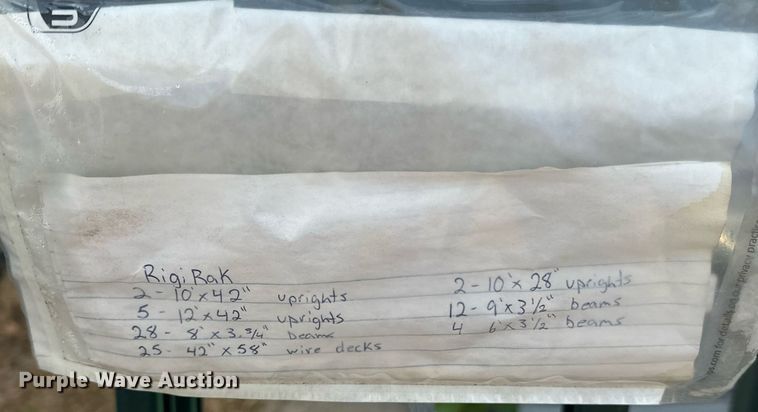 RigiRak
2 - 10' x 42" uprights
5 - 12' x 42" uprights
28 - 8' x 3.3/4" beams
25 - 42" x 58" wire decks
2 - 10' x 28" uprights
12 - 9' x 3 1/2" beams
4 6' x 3 1/2" beams
privacy practic
Purple Wave Auction